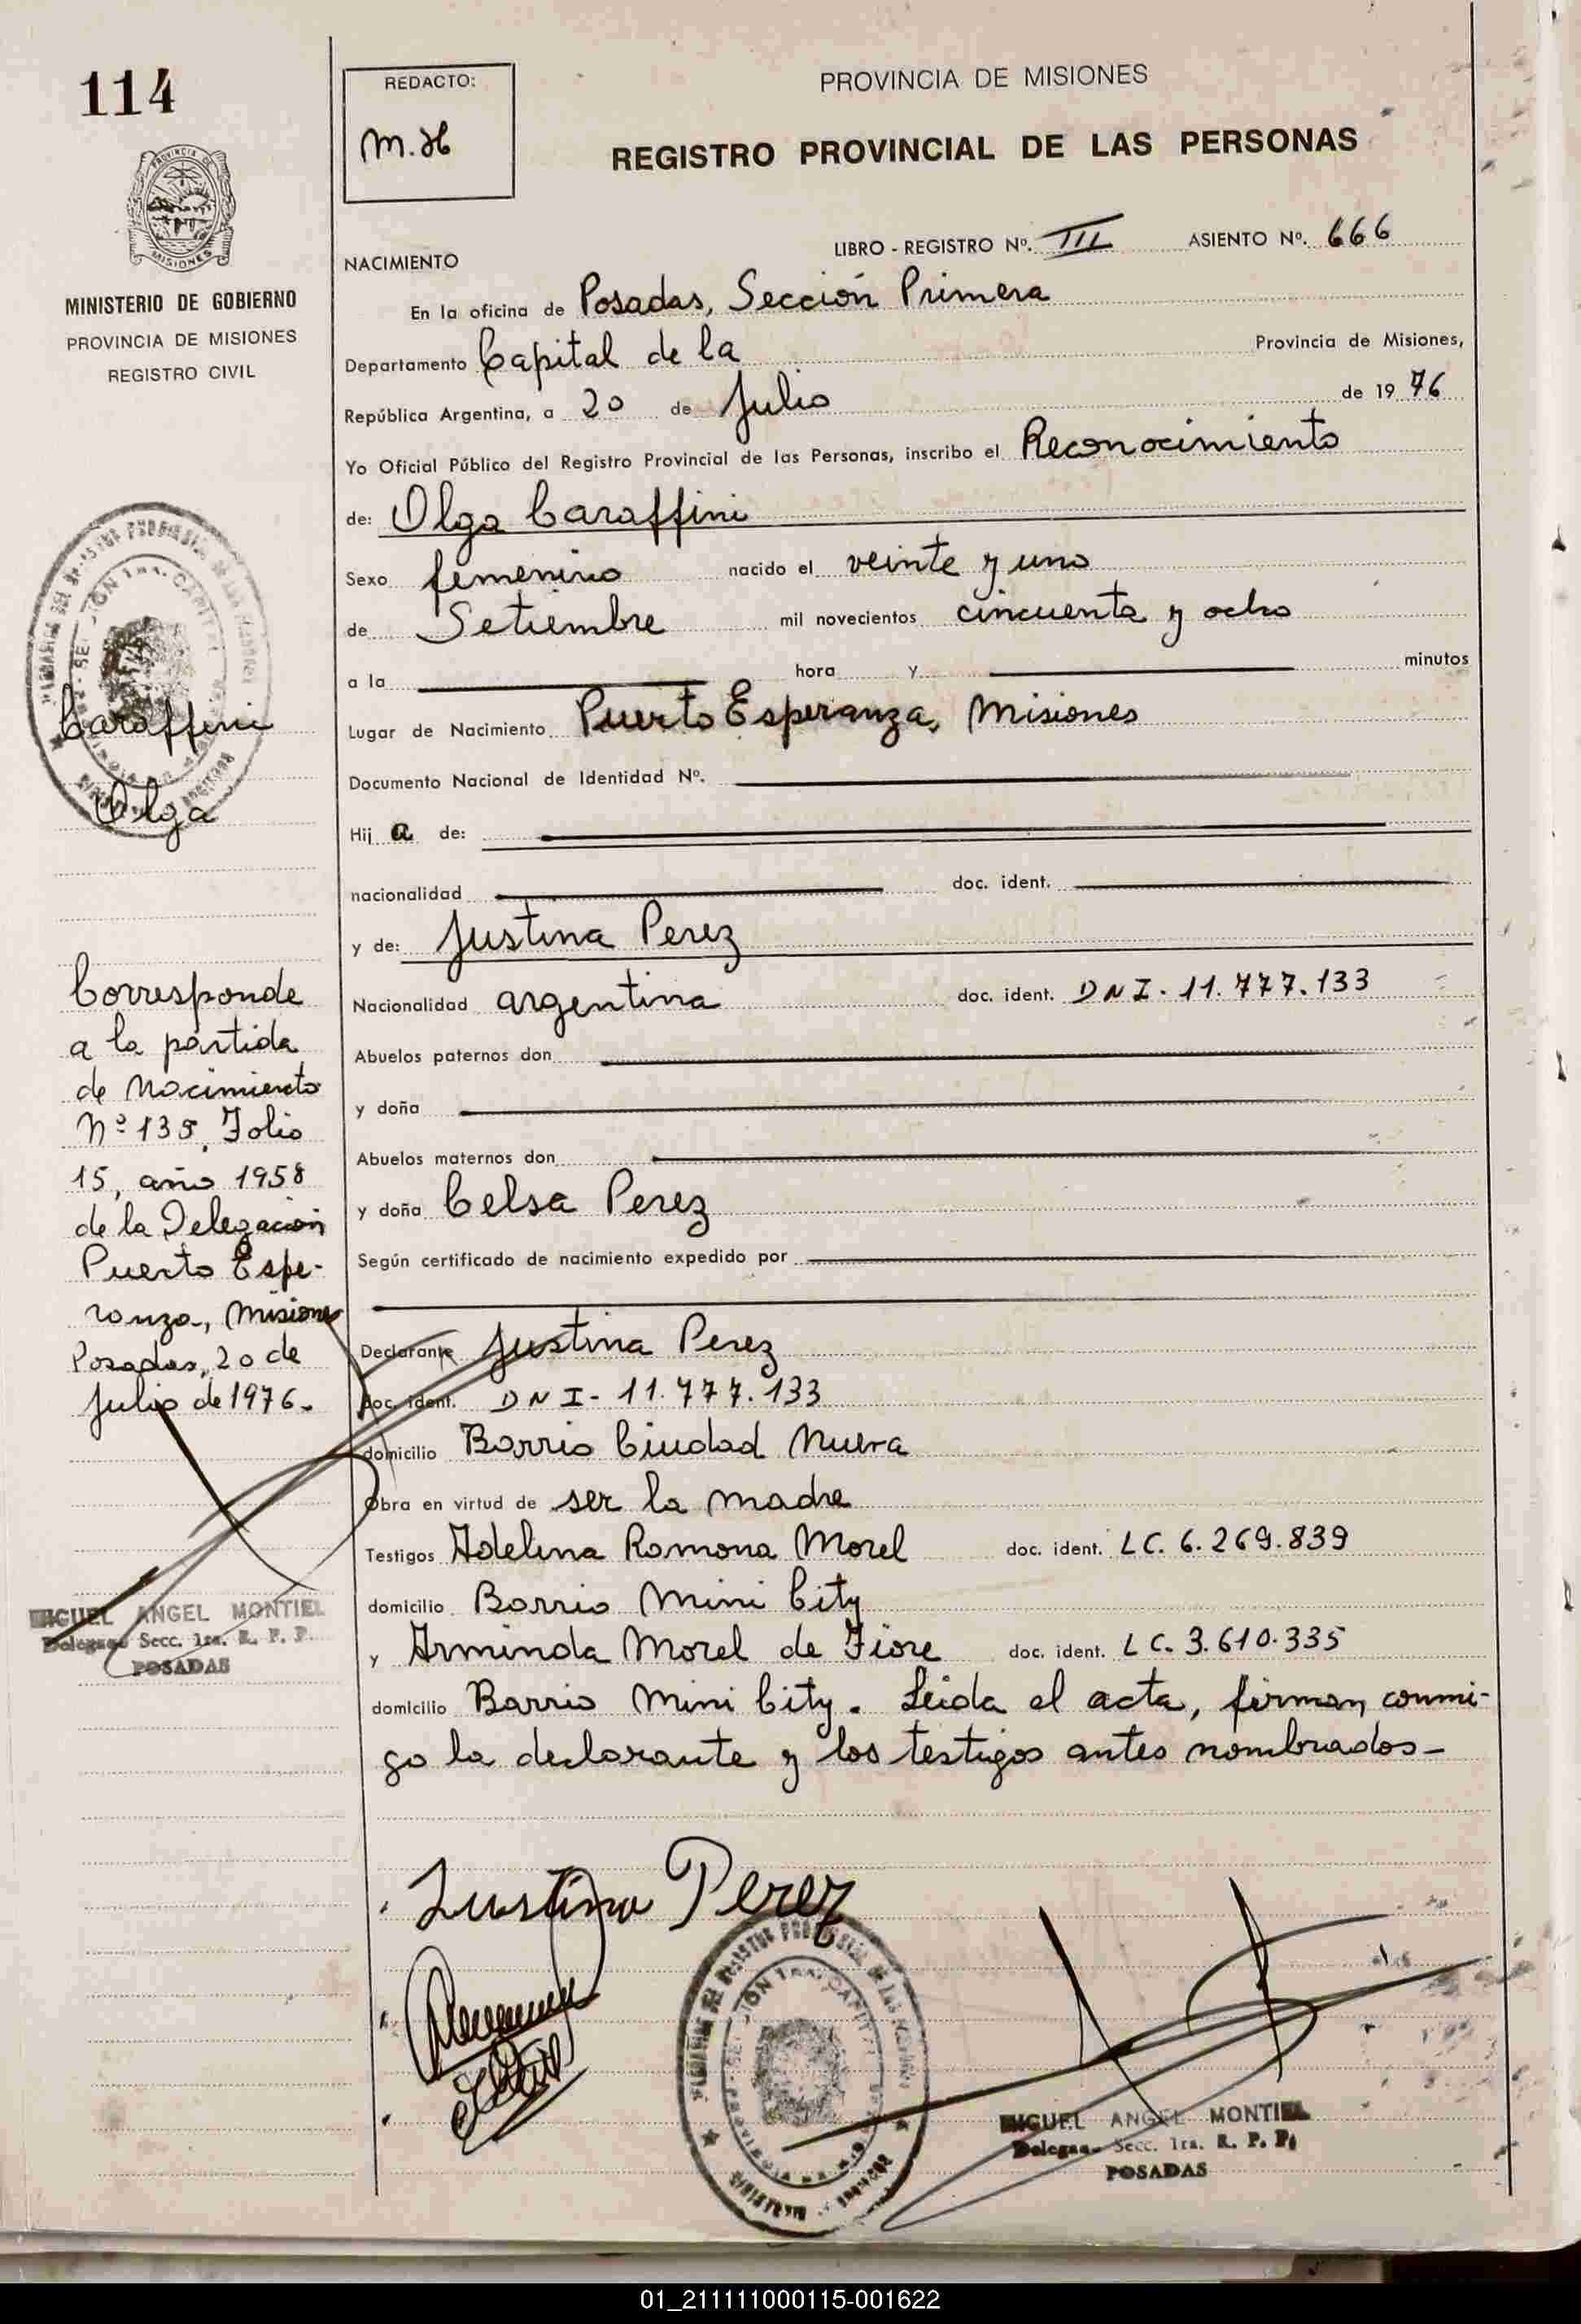 114
PROVINCIA DE MISIONES
MINISTERIO DE GOBIERNO
PROVINCIA DE MISIONES
REGISTRO CIVIL
Caraffini
Olga
Corresponde
a la partida
de Nacimiento
Nº 135, Folio
15, año 1958
de la Delegación
Puerto Espe-
ranza, Misiones
Posadas, 20 de
Julio de 1976.
MIGUEL ANGEL MONTIEL
Delegado Secc. 1ra. R. P. P.
POSADAS
REDACTO:
M.H
PROVINCIA DE MISIONES
REGISTRO PROVINCIAL DE LAS PERSONAS
LIBRO - REGISTRO Nº. III ASIENTO Nº. 666
NACIMIENTO
En la oficina de Posadas, Sección Primera
Departamento Capital de la Provincia de Misiones,
República Argentina, a 20 de Julio de 1976
Yo Oficial Público del Registro Provincial de las Personas, inscribo el Reconocimiento
de: Olga Caraffini
Sexo femenino nacido el veinte y uno
de Setiembre mil novecientos cincuenta y ocho
a la hora y minutos
Lugar de Nacimiento Puerto Esperanza, Misiones
Documento Nacional de Identidad Nº.
Hij a de:
nacionalidad doc. ident.
y de: Justina Perez
Nacionalidad argentina doc. ident. DNI. 11.777.133
Abuelos paternos don
y doña
Abuelos maternos don
y doña Celsa Perez
Según certificado de nacimiento expedido por
Declarante Justina Perez
doc. ident. DNI- 11.777.133
domicilio Barrio Ciudad Nueva
Obra en virtud de ser la madre
Testigos Adelina Ramona Morel doc. ident. LC. 6.269.839
domicilio Barrio Mini City
y Arminda Morel de Fiore doc. ident. LC. 3.610.335
domicilio Barrio Mini City. Leida el acta, firman conmi-
go la declarante y los testigos antes nombrados-
Justina Perez
MIGUEL ANGEL MONTIEL
Delegado Secc. 1ra. R. P. P.
POSADAS
01_211111000115-001622